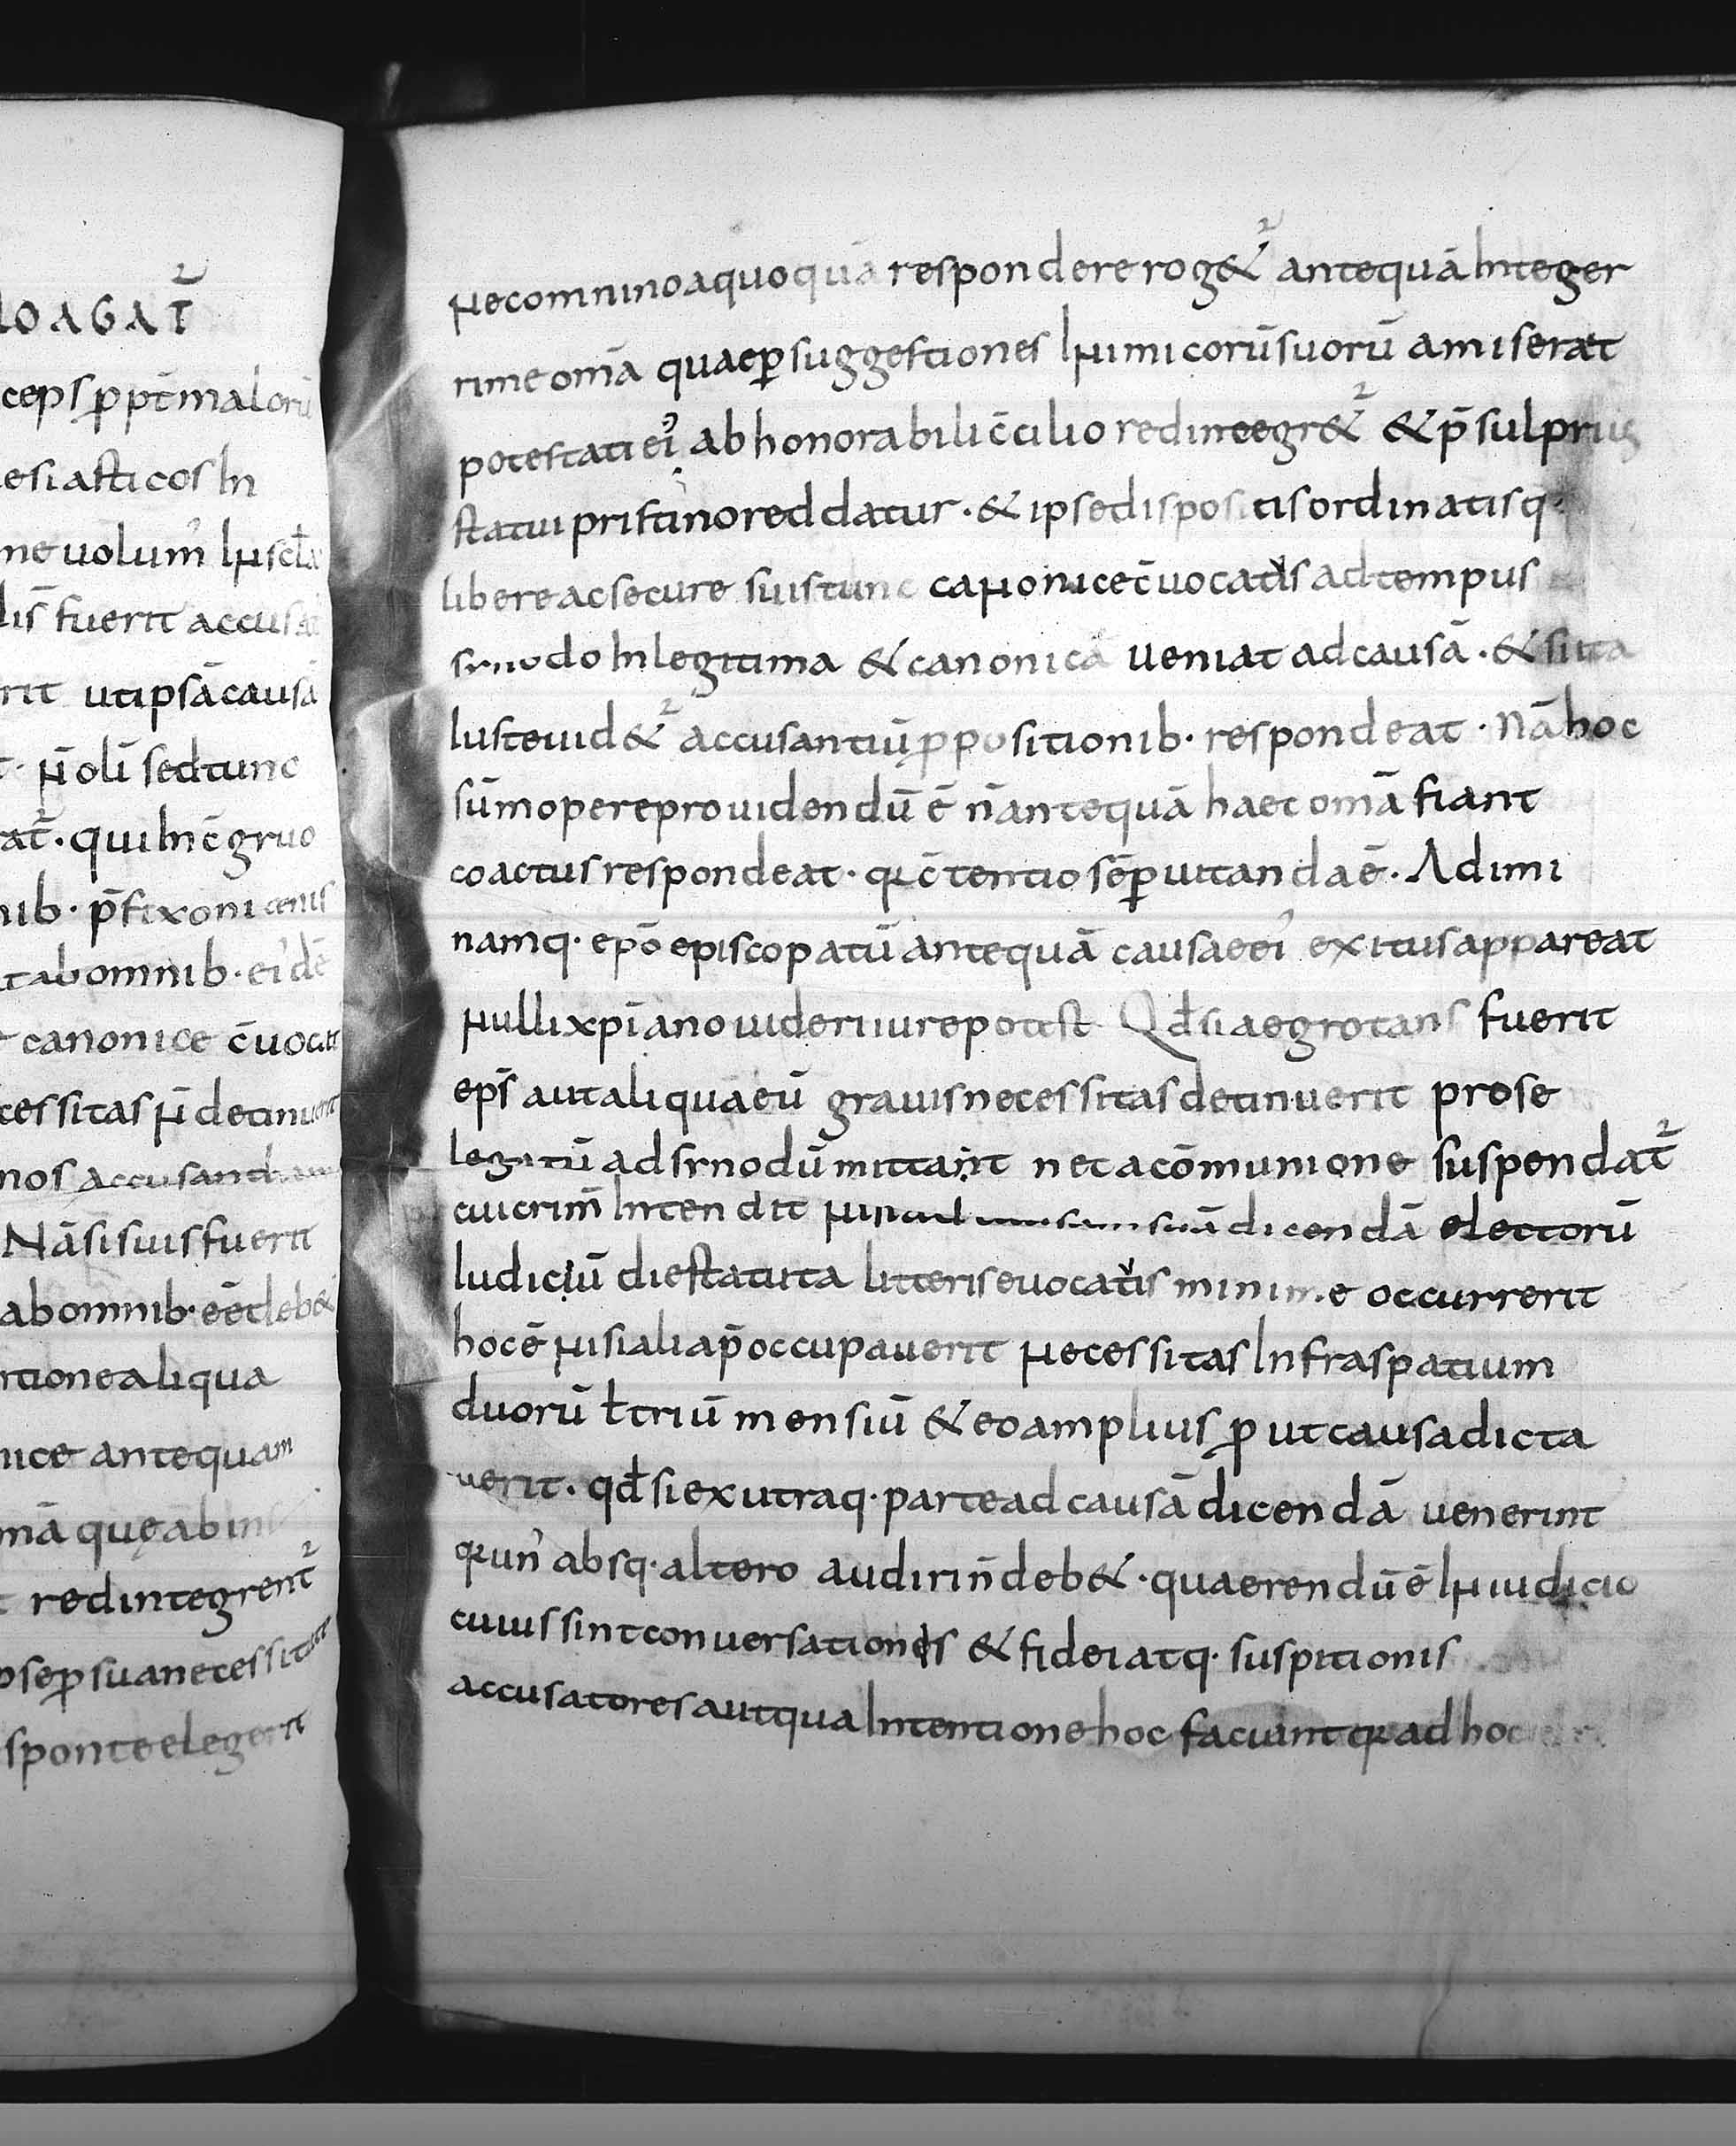 LOAGAT̄
ceps ꝑpt̄ malorū
esiasticos In
ne uolum̉ Inscła
lis̄ fuerit accusat
rit ut ipsā causā
n̄ olī sed tunc
rat̄. qui In c̄gruo
nib. p̄fixo ni
t ab omnib. eỉdē
canonice c̄uocat
cessitas n̄ detinuerit
nos accusant
Nā si suis fuerit
ab omnib. eē deb&
rtione aliqua
nice antequam
mā quę ab ini
redintegrent̄
pse ꝑ sua necessitate
sponte elegerit
nec omnino a quoquā respondere rog&̄ antequā Integer
rime omā quae ꝑ suggestiones Inimicorū suorū amiserat
potestati eỉ ab honorabili c̄cilio redintegr&̄ & p̄sul prius
statui pristino reddatur. & ipse dispositis ordinatisq.
libere ac secure suis tunc canonice c̄uocatis ad tempus
synodo In legitima & canonicā ueniat ad causā. & si ita
Iuste uid&̄ accusantiū ꝓpositionib. respondeat. Nā hoc
sūmopere prouidendū ē n̄ antequā haec omā fiant
coactus respondeat. qr c̄tentio sēꝑ uitanda ē. Adimi
namq. epō episcopatū antequā causae eỉ exitus appareat
nulli xp̄iano uideri iure potest Qđ si aegrotans fuerit
ep̄s aut aliqua eū grauis necessitas detinuerit pro se
legatū ad synodū mittant nec a cōmunione suspendat̄
cui crim̄ Intendit suā dicendā electorū
Iudiciū die statuta litteris euocatus minime occurrerit
hoc ē nisi alia p̄occupauerit necessitas Infra spatium
duorū ł triū mensiū & eo amplius ꝓut causa dicta
uerit. qđ si ex utraq. parte ad causā dicendā uenerint
qr un̉ absq. altero audiri n̄ deb&. quaerendū ē In iudicio
cuius sint conuersationis & fidei atq. suspitionis
accusatores aut qua Intentione hoc faciunt qr ad hoc